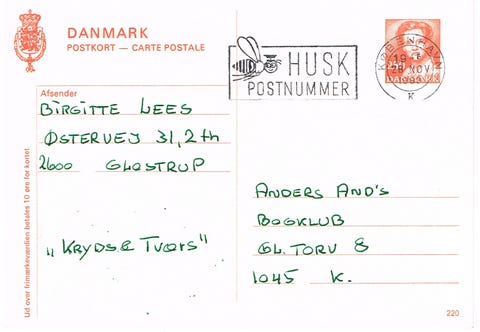 DANMARK
POSTKORT — CARTE POSTALE
HUSK
POSTNUMMER
KØBENHAVN
19
28 NOV
K
DANMARK
Afsender
BIRGITTE LEES
ØSTERVEJ 31, 2 th
2600 GLOSTRUP
"KRYDS & TVÆRS"
ANDERS AND'S
BOGKLUB
GL. TORV 8
1045 K.
Ud over frimærkeværdien betales 10 øre for kortet
220